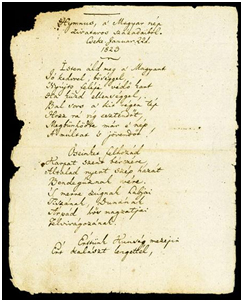 Hymnus, a' Magyar nép
zivataros századaiból.
Cseke, Januar. 22d.
1823
Isten áldd meg a' Magyart
Jó kedvvel, bőséggel,
Nyújts feléje védő kart
Ha küzd ellenséggel;
Bal sors a' kit régen tép
Hozz rá víg esztendőt,
Megbűnhődte már e' nép
A' múltat 's jövendőt!
Őseinket felhozád
Kárpát szent bérczére,
Általad nyert szép hazát
Bendegúznak vére.
'S merre zúgnak habjai
Tiszának, Dunának
Árpád hős magzatjai
Felvirágozának.
Értünk Kunság mezein
Ért kalászt lengettél,